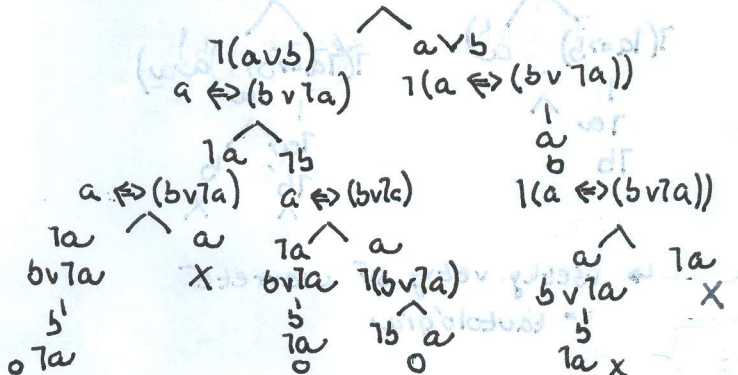 ¬(a∨b) a∨b
a ⇔ (b ∨ ¬a) ¬(a ⇔ (b ∨ ¬a))
¬a ¬b a
b
a ⇔ (b∨¬a) a ⇔ (b∨¬a) ¬(a ⇔ (b∨¬a))
¬a a ¬a a a ¬a
b∨¬a X b∨¬a ¬(b∨¬a) b∨¬a X
b b ¬b a b
o ¬a ¬a o ¬a x
o